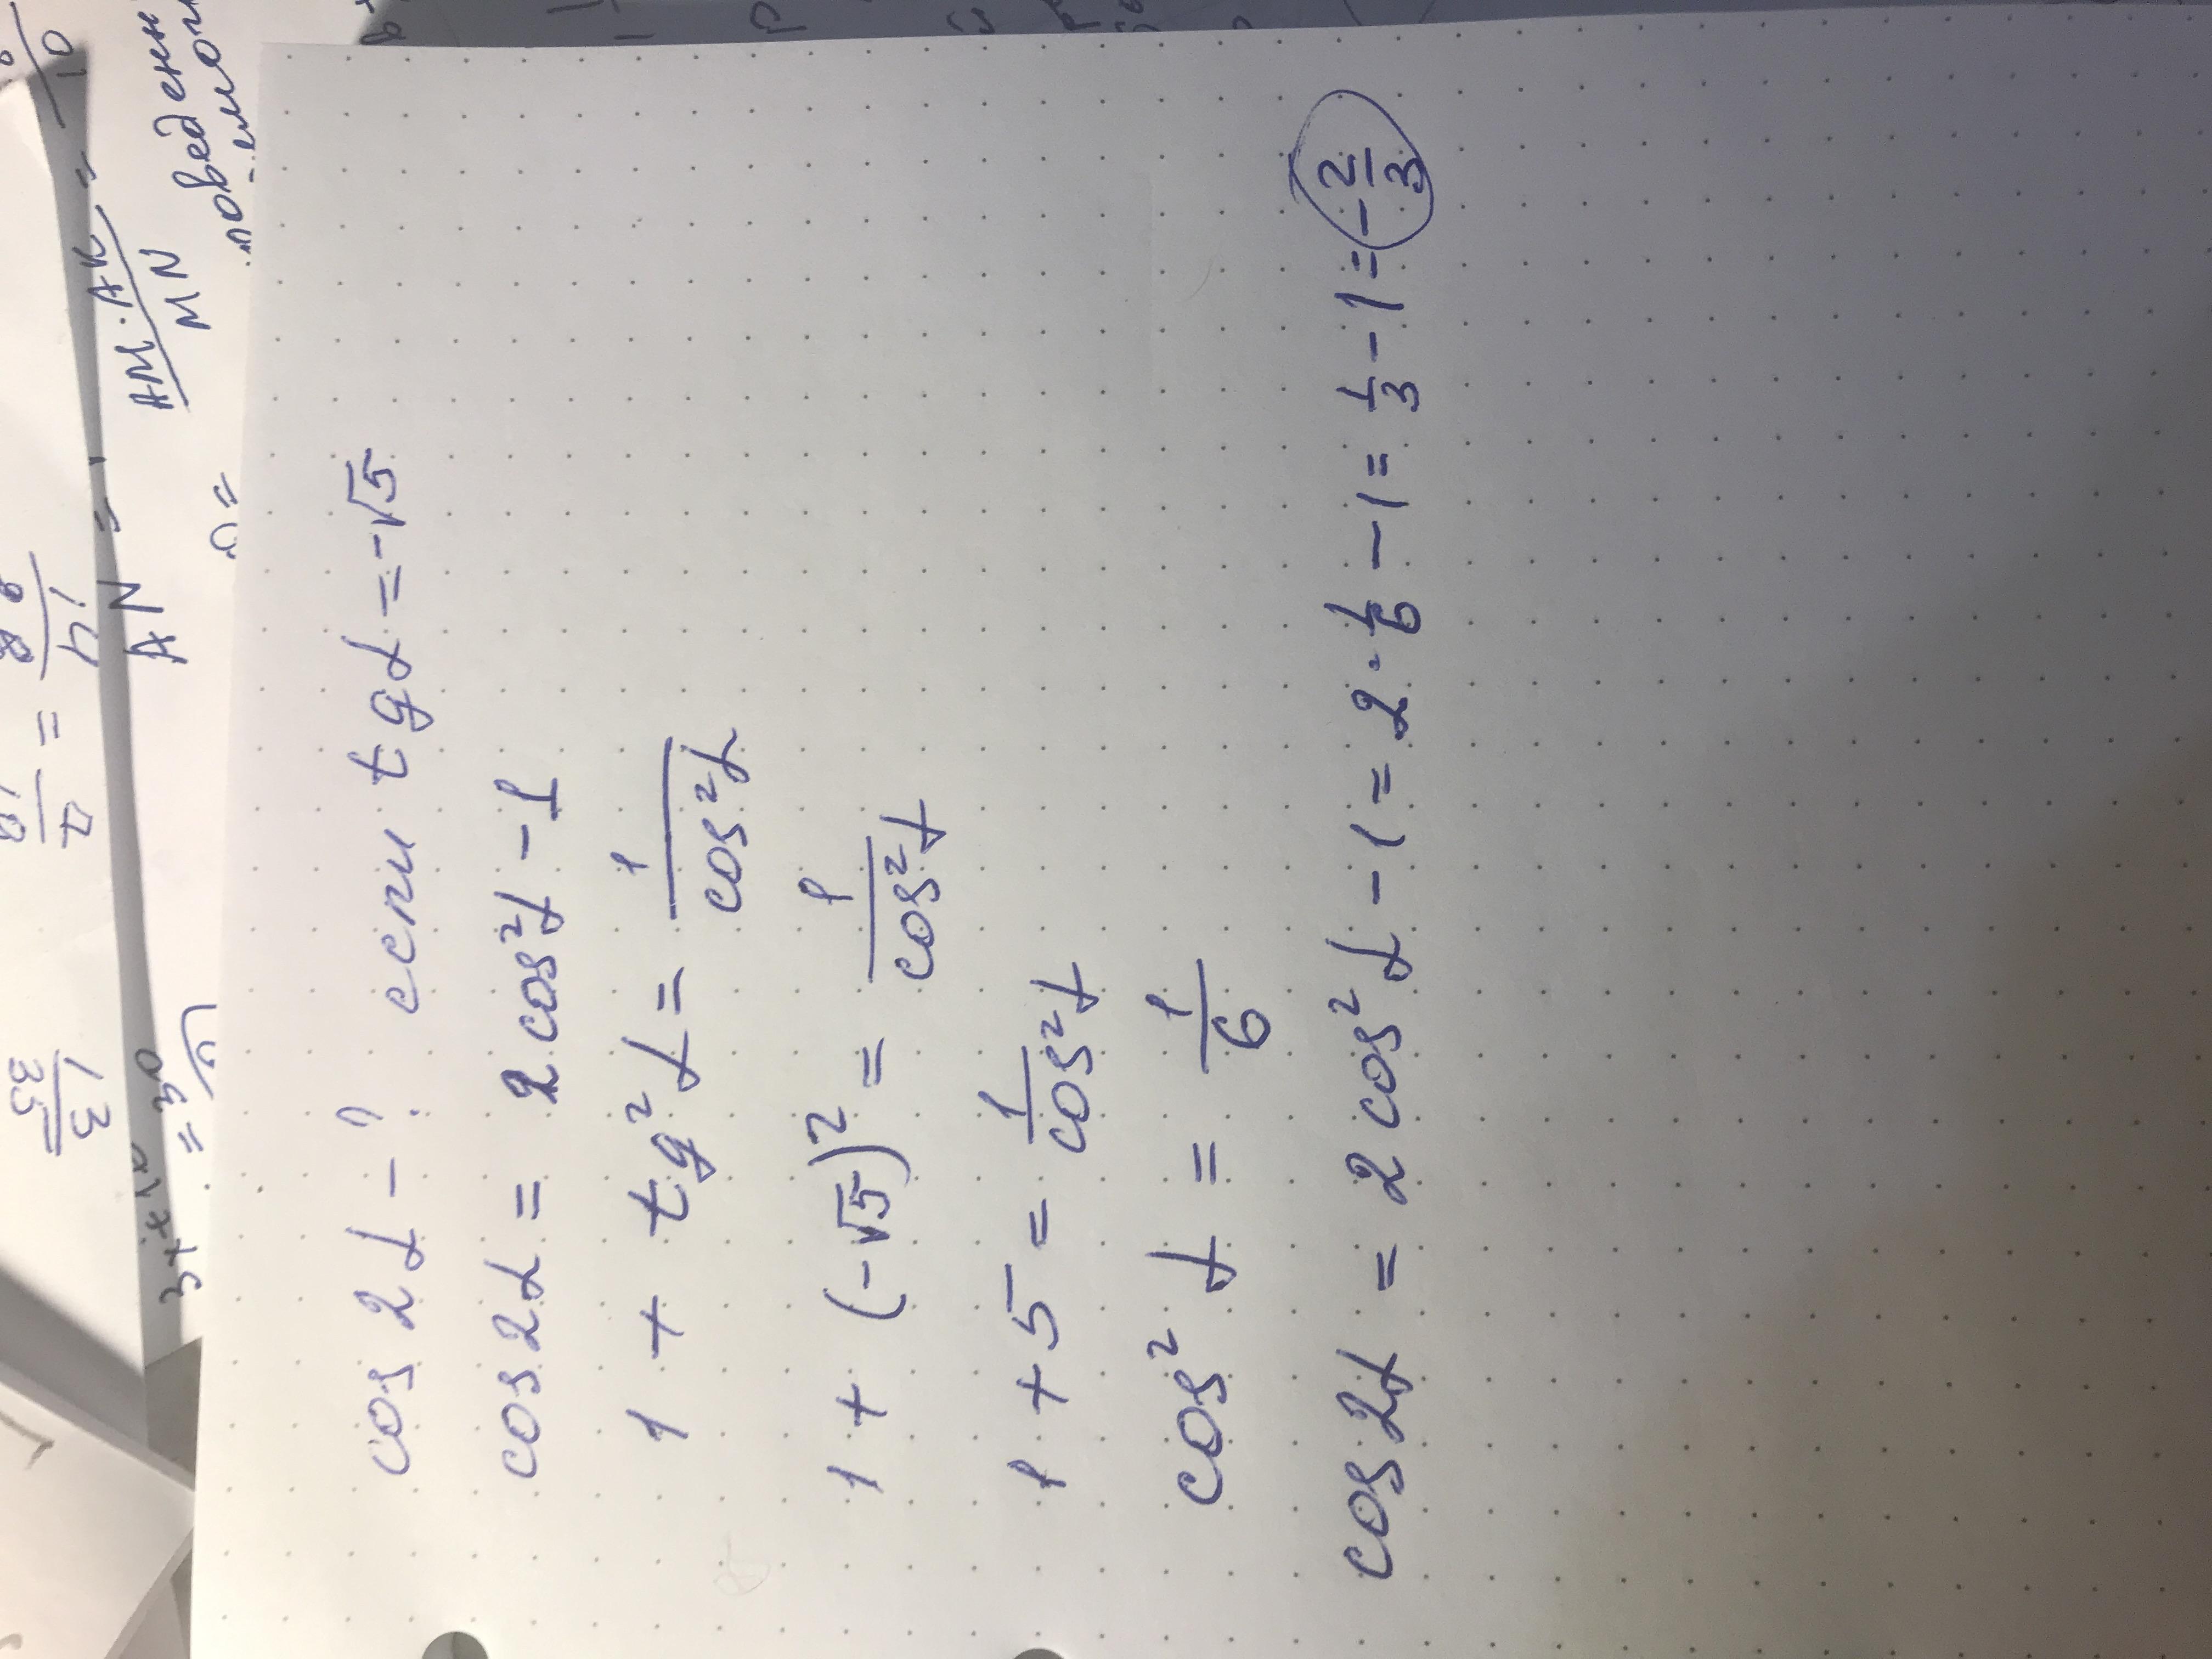 cos 2α - ? если tgα = -√5
cos 2α = 2 cos²α - 1
1 + tg²α = 1/cos²α
1 + (-√5)² = 1/cos²α
1 + 5 = 1/cos²α
cos²α = 1/6
cos 2α = 2 cos²α - 1 = 2 · 1/6 - 1 = 1/3 - 1 = -2/3
AN =
AM · AK / MN =